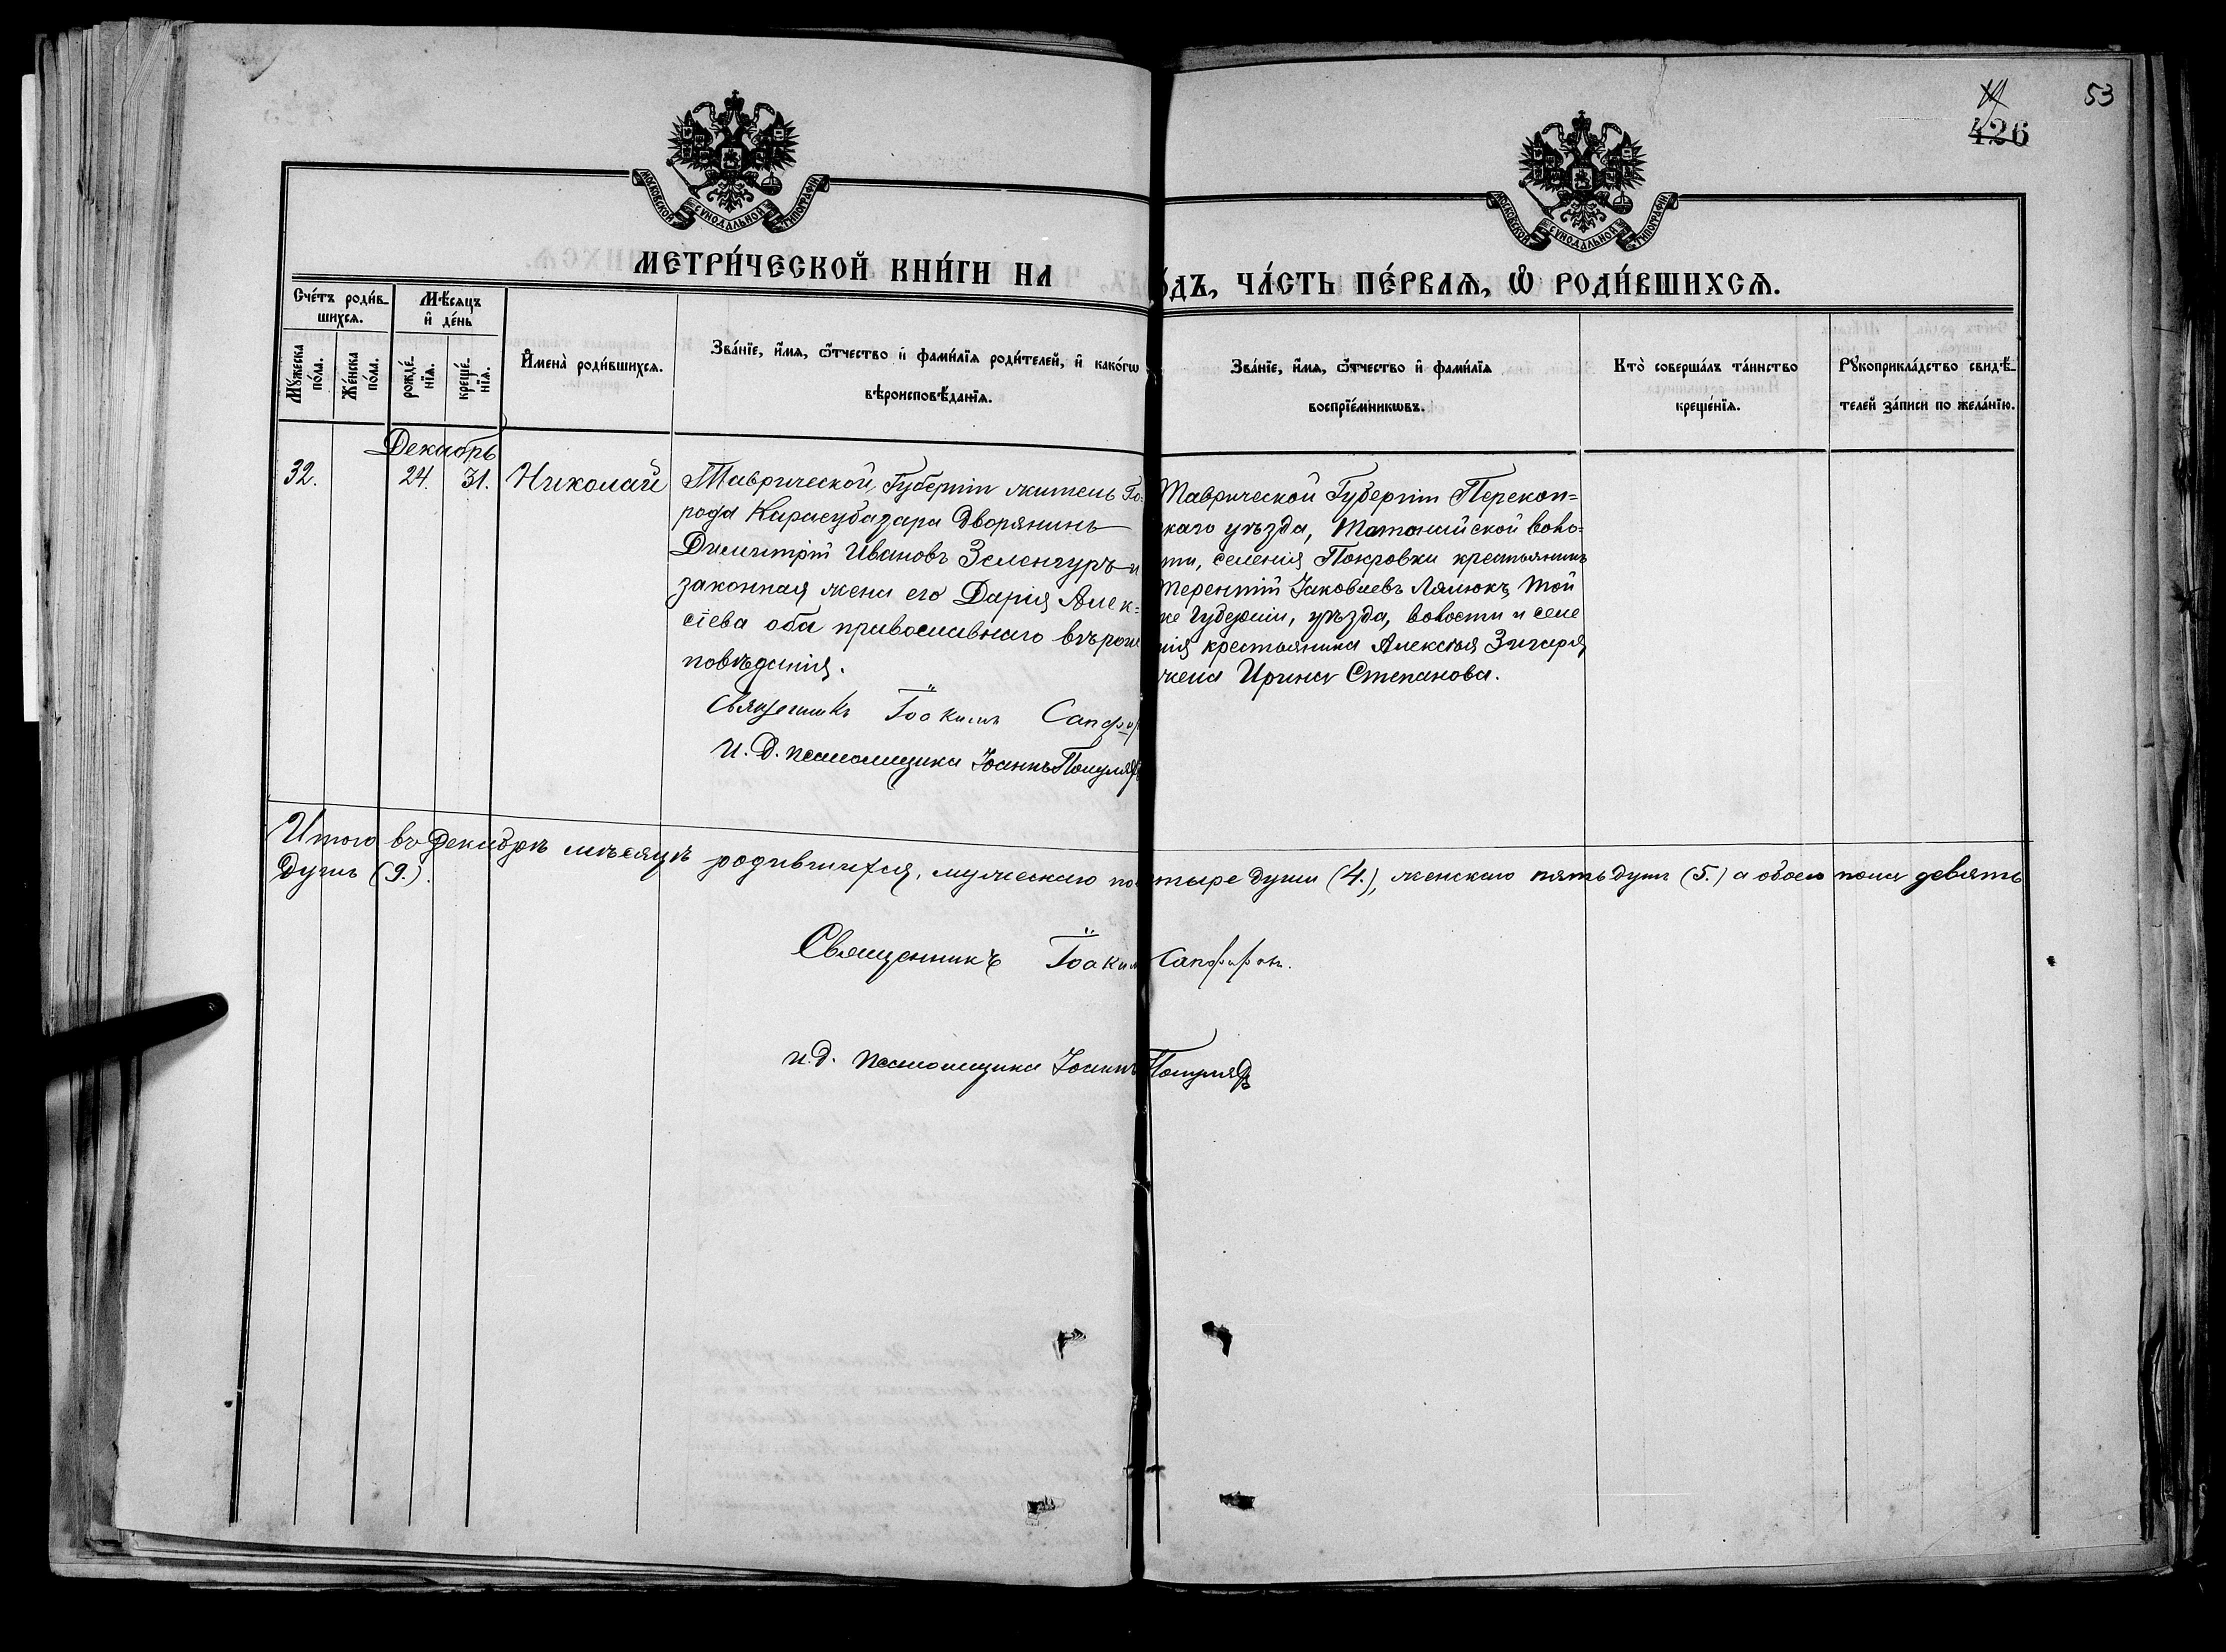 53
426
МОСКОВСКОЙ СѴНОДАЛЬНОЙ ТИПОГРАФІИ
МОСКОВСКОЙ СѴНОДАЛЬНОЙ ТИПОГРАФІИ
МЕТРИ́ЧЕСКОЙ КНИ́ГИ НА
ОДЪ, ЧА́СТЬ ПЕ́РВАѦ, Ѡ҆ РОДИ́ВШИХСѦ.
Сче́тъ роди́в-
шихсѧ.
Мѣ́сѧцъ
и҆ де́нь
Мꙋ́жеска
по́ла.
Же́нска
по́ла.
рожде́-
нїѧ.
креще́-
нїѧ.
И҆мена̀ роди́вшихсѧ.
Зва́нїе, и҆́мѧ, ѻ҆́тчество и҆ фами́лїѧ роди́телей, и҆ како́гѡ
вѣроисповѣ́данїѧ.
Зва́нїе, и҆́мѧ, ѻ҆́тчество и҆ фами́лїѧ
воспрїе́мникѡвъ.
Кто̀ соверша́лъ та́инство
креще́нїѧ.
Рꙋкоприкла́дство свидѣ́-
телей за́писи по жела́нїю.
Декабрь
32. 24. 31. Николай
Таврической Губерніи житель Го-
рода Карасубазара Дворянинъ
Димитрій Ивановъ Зеленгуръ и
законная жена его Дарія Алек=
сіева оба православнаго вѣроис
повѣданія.
Священникъ Іоакимъ
И. Д. псаломщика Іоаннъ Популяръ
Таврической Губерніи Перекоп=
скаго уѣзда, воло=
сти, селенія Покровки крестьянинъ
Терентій Іаковлевъ Лялюкъ, той
же Губерніи, уѣзда, волости и селе
нія крестьянина Алексѣя
жена Ирина Степанова.
Итого въ Декабрѣ мѣсяцѣ родившихся, мужескаго по тыре души (4.), женскаго пять душъ (5.) а обоего пола девять
душъ (9.).
Священникъ Іоаким
и. д. псаломщика Іоаннъ Популяръ